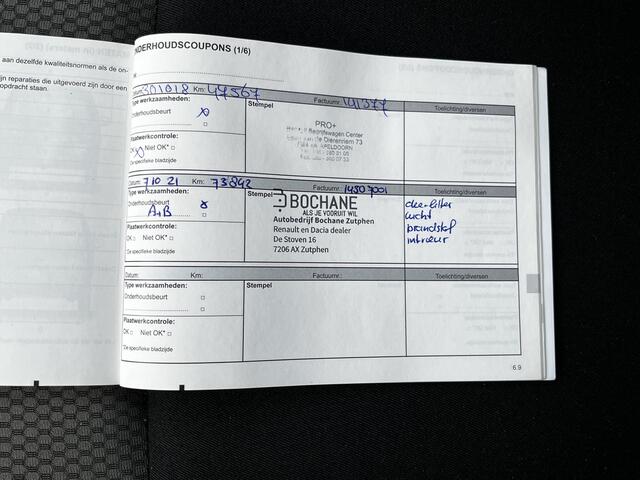 aan dezelfde kwaliteitsnormen als de on-
jn reparaties die uitgevoerd zijn door een
opdracht staan.
NDERHOUDSCOUPONS (1/6)
Datum: 301018 Km: 47567 Factuurnr.: 141377 Toelichting/diversen
Type werkzaamheden: Stempel
Onderhoudsbeurt x
PRO+
Bedrijfswagen Center
APELDOORN
Plaatwerkcontrole:
OK Niet OK*
*Zie specifieke bladzijde
Datum: 7 10 21 Km: 73842 Factuurnr.: 14507001 Toelichting/diversen
Type werkzaamheden: Stempel
Onderhoudsbeurt x
A+B
BOCHANE
ALS JE VOORUIT WIL
Autobedrijf Bochane Zutphen
Renault en Dacia dealer
De Stoven 16
7206 AX Zutphen
olie-filter
lucht
brandstof
interieur
Plaatwerkcontrole:
OK Niet OK*
*Zie specifieke bladzijde
Datum: Km: Factuurnr.: Toelichting/diversen
Type werkzaamheden: Stempel
Onderhoudsbeurt
Plaatwerkcontrole:
OK Niet OK*
*Zie specifieke bladzijde
6.9